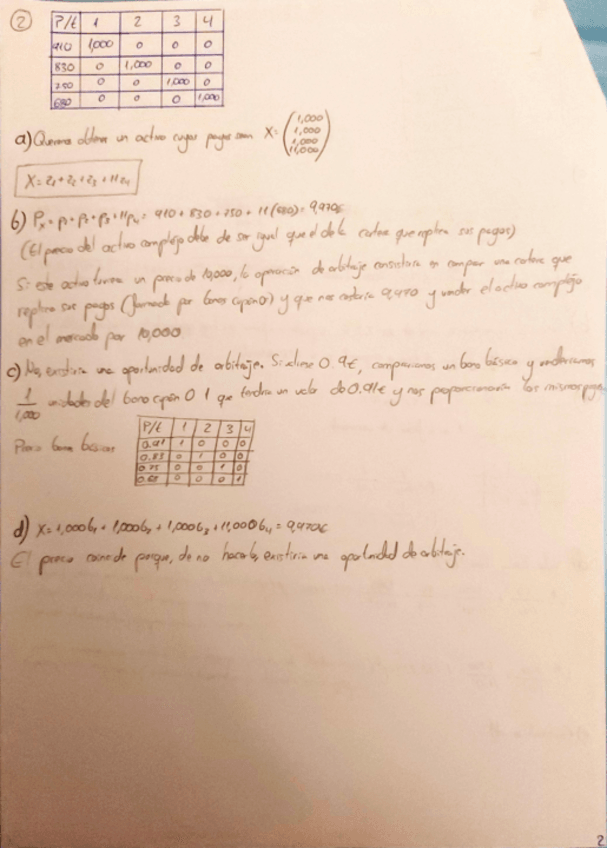 2
P/t 1 2 3 4
910 1,000 0 0 0
830 0 1,000 0 0
750 0 0 1,000 0
680 0 0 0 1,000
a) Queremos obtener un activo cuyos pagos sean X = (1,000 1,000 1,000 11,000)
X = z1 + z2 + z3 + 11z4
b) Px = p1 + p2 + p3 + 11p4 = 910 + 830 + 750 + 11(680) = 9,970€
(El precio del activo complejo debe de ser igual que el de la cartera que replica sus pagos)
Si este activo tuviera un precio de 10,000, la operación de arbitraje consistiría en comprar una cartera que
replica sus pagos (formada por bonos cupón 0) y que nos costaría 9,970 y vender el activo complejo
en el mercado por 10,000.
c) No, existiría una oportunidad de arbitraje. Si 0.9€, compraríamos un bono básico y venderíamos
1/1,000 unidades del bono cupón 0 1 que tendría un valor de 0.91€ y nos proporcionaría los mismos pagos
Precio bonos básicos
P/t 1 2 3 4
0.91 1 0 0 0
0.83 0 1 0 0
0.75 0 0 1 0
0.68 0 0 0 1
d) X = 1,000b1 + 1,000b2 + 1,000b3 + 11,000b4 = 9,970€
El precio coincide porque, de no hacerlo, existiría una oportunidad de arbitraje.
2